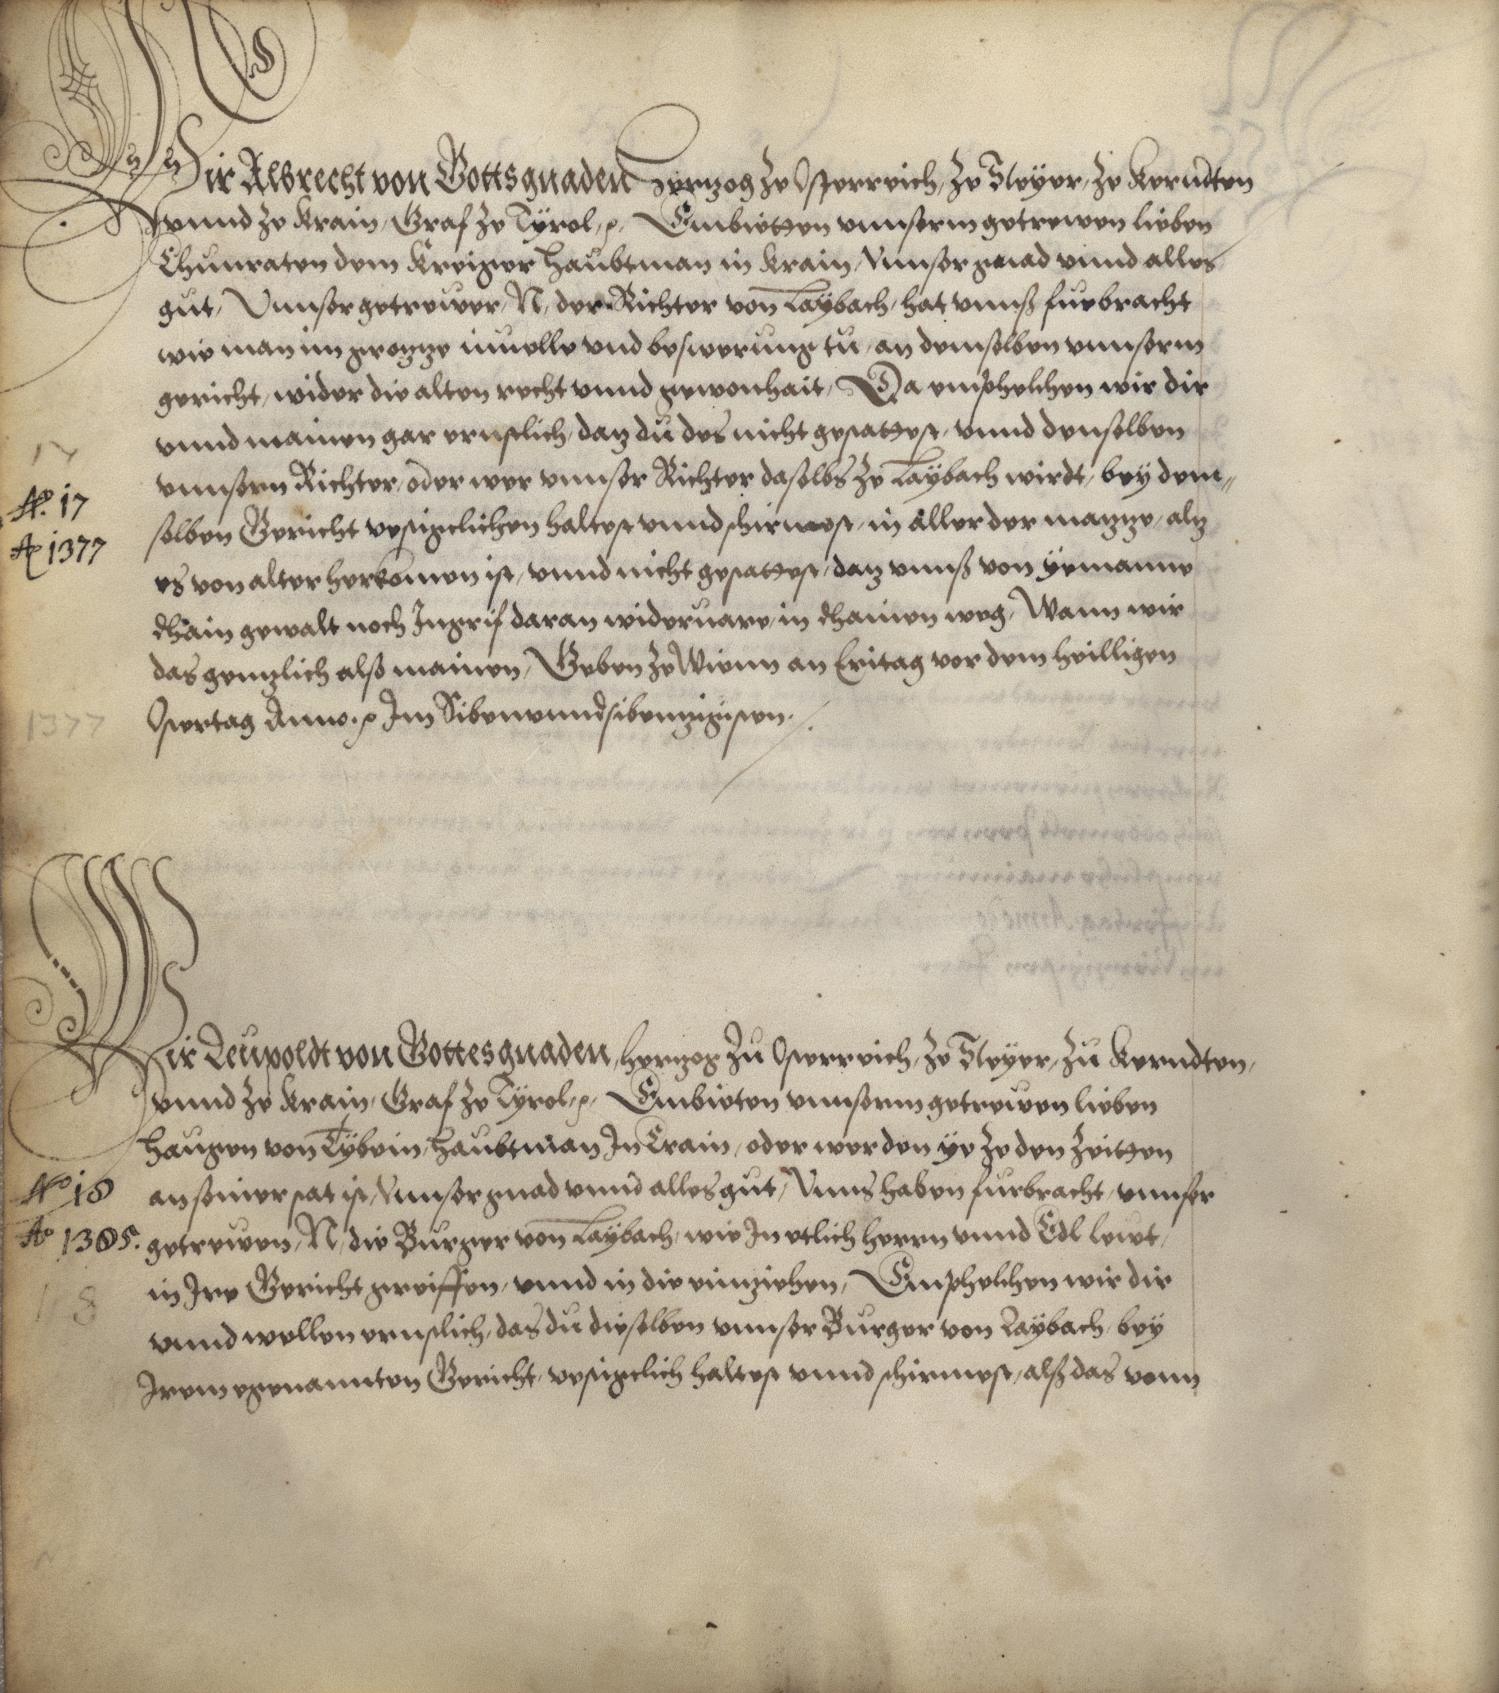 Wir Albrecht von Gottsgnaden Hertzog ze Osterreich, ze Steyer, ze Kerndten
vnnd ze Krain, Graf ze Tyrol, ꝛc. Embietten vnnserm getrewen lieben
Chunraten dem Kreiger Haubtman in Krain, Vnnser gnad vnnd alles
gut, Vnnser getrewer, N, der Richter von Laybach, hat vnnß furbracht
wie man im grozze inuelle vnd beswerung tu, an demselben vnnserm
gericht, wider die alten recht vnnd gewonhait, Da emphelchen wir dir
vnnd mainen gar ernstlich, daz du des nicht gestattest, vnnd denselben
vnnsern Richter, oder wer vnnser Richter daselbs ze Laybach wirdt, bey dem„
A° 17
selben Gericht vestigclichen haltest vnnd schirmest, in aller der mazze, alz
A° 1377
es von alter herkomen ist, vnnd nicht gestattest, daz vnnß von yemanne
dhain gewalt noch Ingrif daran wideruare, in dhainen weg, Wann wir
das gentzlich alß mainen, Geben ze Wienn an Eritag vor dem heilligen
Ostertag Anno. ꝛc Im Sibenvnndsibenzigisten.
1377
Wir Leupoldt von Gottesgnaden, Hertzog zu Osterreich, ze Steyer, zu Kerndten,
vnnd ze Krain, Graf ze Tyrol, ꝛc. Embieten vnnserm getrewen lieben
Haugen von Tybein, Haubtman In Crain, oder wer den ye ze den Zeitten
N° 18
an seiner stat ist, Vnnser gnad vnnd alles gut, Vnns haben furbracht, vnnser
A° 1385.
getrewen, N, die Burger von Laybach, wie In etlich Herrn vnnd Edl lewt,
in Ire Gericht greiffen, vnnd in die einziehen, Emphelchen wir dir
18
vnnd wellen ernstlich, das du dieselben vnnser Burger von Laybach, bey
Irem egenannten Gericht, vestigclich haltest vnnd schirmest, alß das vonn